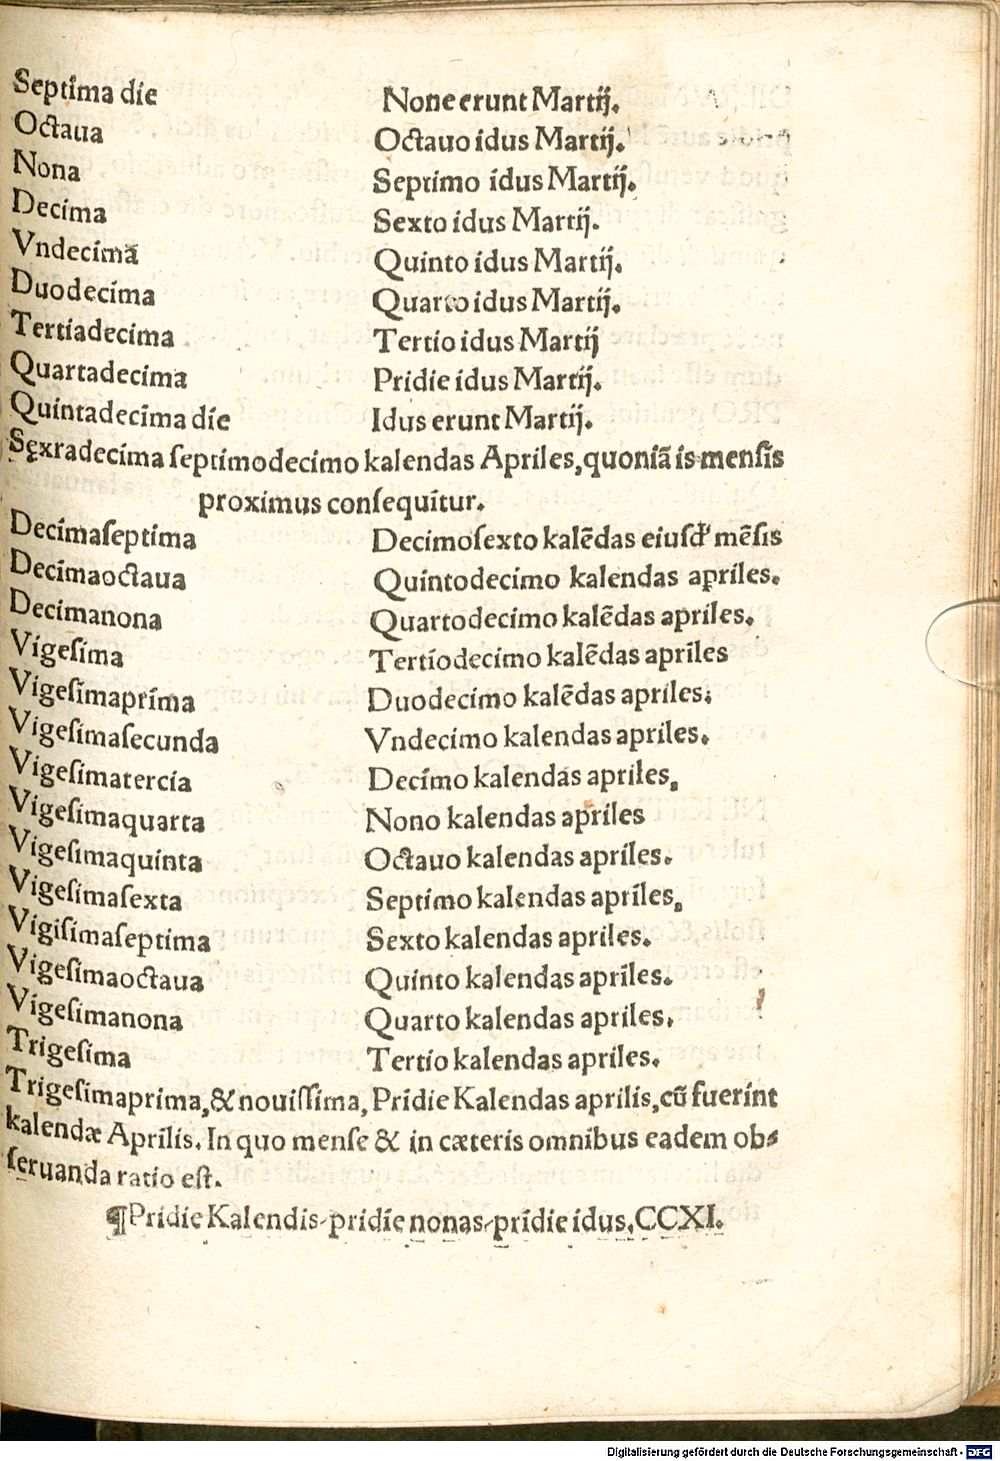 Septima die None erunt Martij.
Octaua Octauo idus Martij.
Nona Septimo idus Martij.
Decima Sexto idus Martij.
Vndecimā Quinto idus Martij.
Duodecima Quarto idus Martij.
Tertiadecima Tertio idus Martij
Quartadecima Pridie idus Martij.
Quintadecima die Idus erunt Martij.
Sęxradecima ſeptimodecimo kalendas Apriles,quoniā is menſis
proximus conſequitur.
Decimaſeptima Decimoſexto kalēdas eiuſd' mēſis
Decimaoctaua Quintodecimo kalendas apriles.
Decimanona Quartodecimo kalēdas apriles.
Vigeſima Tertiodecimo kalēdas apriles
Vigeſimaprima Duodecimo kalēdas apriles.
Vigeſimaſecunda Vndecimo kalendas apriles.
Vigeſimatercia Decimo kalendas apriles.
Vigeſimaquarta Nono kalendas apriles
Vigeſimaquinta Octauo kalendas apriles.
Vigeſimaſexta Septimo kalendas apriles.
Vigiſimaſeptima Sexto kalendas apriles.
Vigeſimaoctaua Quinto kalendas apriles.
Vigeſimanona Quarto kalendas apriles.
Trigeſima Tertio kalendas apriles.
Trigeſimaprima,& nouiſſima, Pridie Kalendas aprilis,cū fuerint
kalendæ Aprilis. In quo menſe & in cæteris omnibus eadem ob⸗
ſeruanda ratio eſt.
¶Pridie Kalendis⸗pridie nonas⸗pridie idus.CCXI.
Digitalisierung gefördert durch die Deutsche Forschungsgemeinschaft - DFG